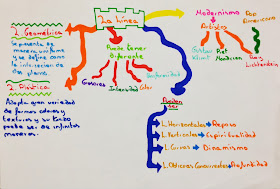 La línea
1. Geométrica
Representa de
manera uniforme
y se define como
la intersección de
dos planos.
2. Plástica
Adopta gran variedad
de formas, clases y
texturas y su trazo
puede ser de infinitas
maneras.
Puede tener
diferente
Grosores
Intensidad
Color
Profundidad
Pueden
ser
L. Horizontales → Reposo
L. Verticales → Espiritualidad
L. Curvas → Dinamismo
L. Oblicuas Convergentes → Profundidad
Modernismo
Artistas
Gustav
Klimt
Piet
Mondrian
Pop
Americano
Roy
Lichtenstein